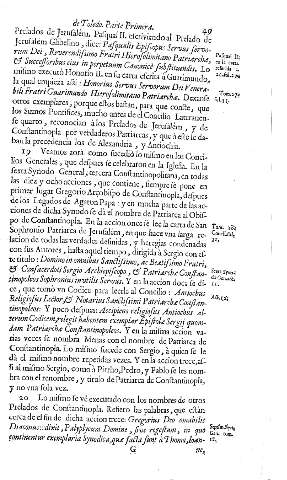 de Toledo. Parte Primera. 49
Prelados de Jerusalèn. Pasqual II. escriviendo al Prelado de
Jerusalèn Gibelino, dice: Pasqualis Episcopus Servus servo-
rum Dei, Reverendissimo Fratri Hierosolymitano Patriarchæ,
& successoribus eius in perpetuum Canonicè substituendis. Lo
mismo executò Honorio II. en su carta escrita à Guarimundo,
la qual empieza assi: Honorius Servus Servorum Dei Venera-
bili Fratri Guarimundo Hierosolymitano Patriarchæ. Dexanse
otros exemplares, porque estos bastan, para que conste, que
los Sumos Pontifices, mucho antes de el Concilio Lateranen-
se quarto, reconocian à los Prelados de Jerusalèn, y de
Constantinopla por verdaderos Patriarcas, y que à este le da-
ban la precedencia los de Alexandria, y Antiochia.
19 Veamos aora como sucediò lo mismo en los Conci-
lios Generales, que despues se celebraron en la Iglesia. En la
sexta Synodo General, tercera Constantinopolitana, en todas
las diez y ocho acciones, que contiene, siempre se pone en
primer lugar Gregorio Arçobispo de Constantinopla, despues
de los Legados de Agaton Papa: y en mucha parte de las ac-
ciones de dicha Synodo se dà el nombre de Patriarca al Obis-
po de Constantinopla. En la accion once se lee la carta de San
Sophronio Patriarca de Jerusalèn, en que hace una larga re-
lacion de todas las verdades definidas, y heregias condenadas
con sus Autores, hasta aquel tiempo, dirigida à Sergio con es-
te titulo: Domino omnibus Sanctissimo, ac Beatissimo Fratri,
& Consacerdoti Sergio Archiepiscopo, & Patriarchæ Constan-
tinopoleos Sophronius inutilis Servus. Y en la accion doce se di-
ce, que tomò un Codice para leerle al Concilio: Antiochus
Religiosus Lector & Notarius Sanctissimi Patriarchæ Constan-
tinopoleos: Y poco despues: Accipiens religiosus Antiochus al-
terum Codicem, relegit habentem exemplar Epistolæ Sergij quon-
dam Patriarchæ Constantinopoleos. Y en la misma accion va-
rias veces se nombra Menas con el nombre de Patriarca de
Constantinopla. Lo mismo sucede con Sergio, à quien se le
dà el mismo nombre repetidas veces. Y en la accion trece, as-
si al mismo Sergio, como à Pirrho, Pedro, y Pablo se les nom-
bra con el renombre, y titulo de Patriarca de Constantinopla,
y no una sola vez.
20 Lo mismo se vè executado con los nombres de otros
Prelados de Constantinopla. Refiero las palabras, que estàn
cerca de el fin de dicha accion trece: Gregorius Deo amabilis
continentur exemplaria Synodica, quæ facta sunt à Thoma, Ioan-
G ne,